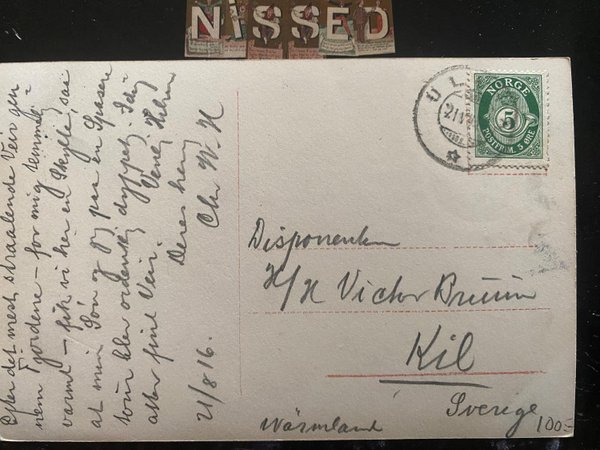 NISSED
Efter det mest straalende Veir gen-
nem fjordene - for mig temmelig
varmt - fik vi her en Skylle, saa
at min Søn og jeg paa en Spasere
tour blev ordentlig dyppet. Idag
atter fint Veir. Venlig Hilsen
Deres heng
Chr W. H
21/8 16.
UL
21
NORGE
5
POSTFRIM. 5 ØRE
Disponenten
H/H Victor Bruun
Kil
Sverige
Wärmland
100:-